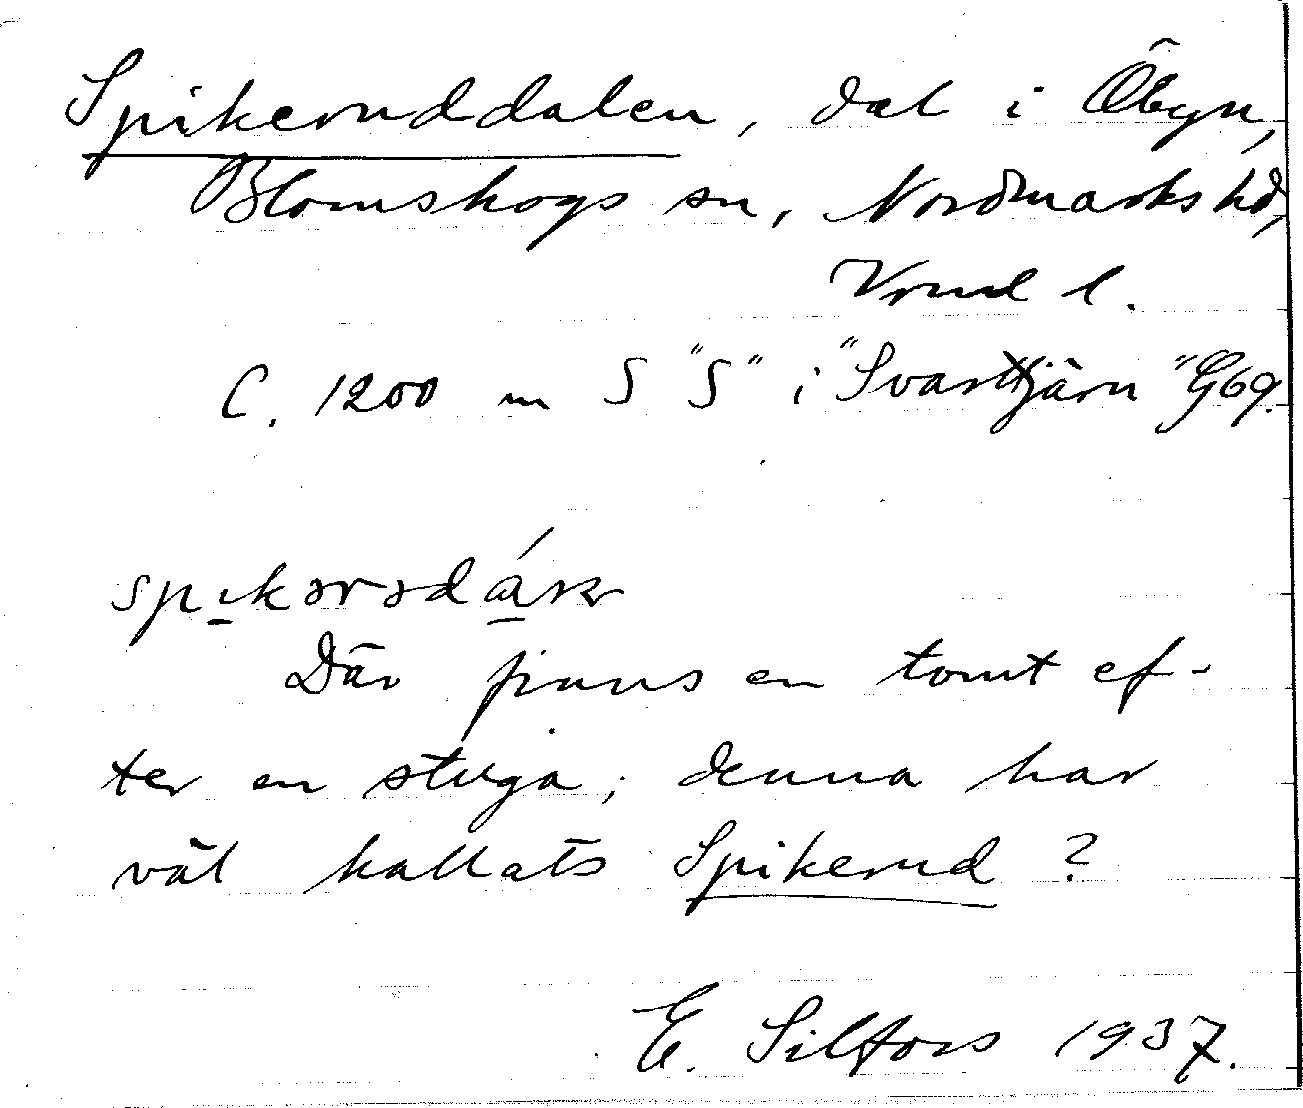 Spikeruddalen, dal i Öbyn,
Blomskogs sn, Nordmarks hd,
Vrml l.
C. 1200 m S "S" i "Svarttjärn" G69.
Där finns en tomt ef-
ter en stuga; denna har
väl kallats Spikerud?
E. Silfors 1937.